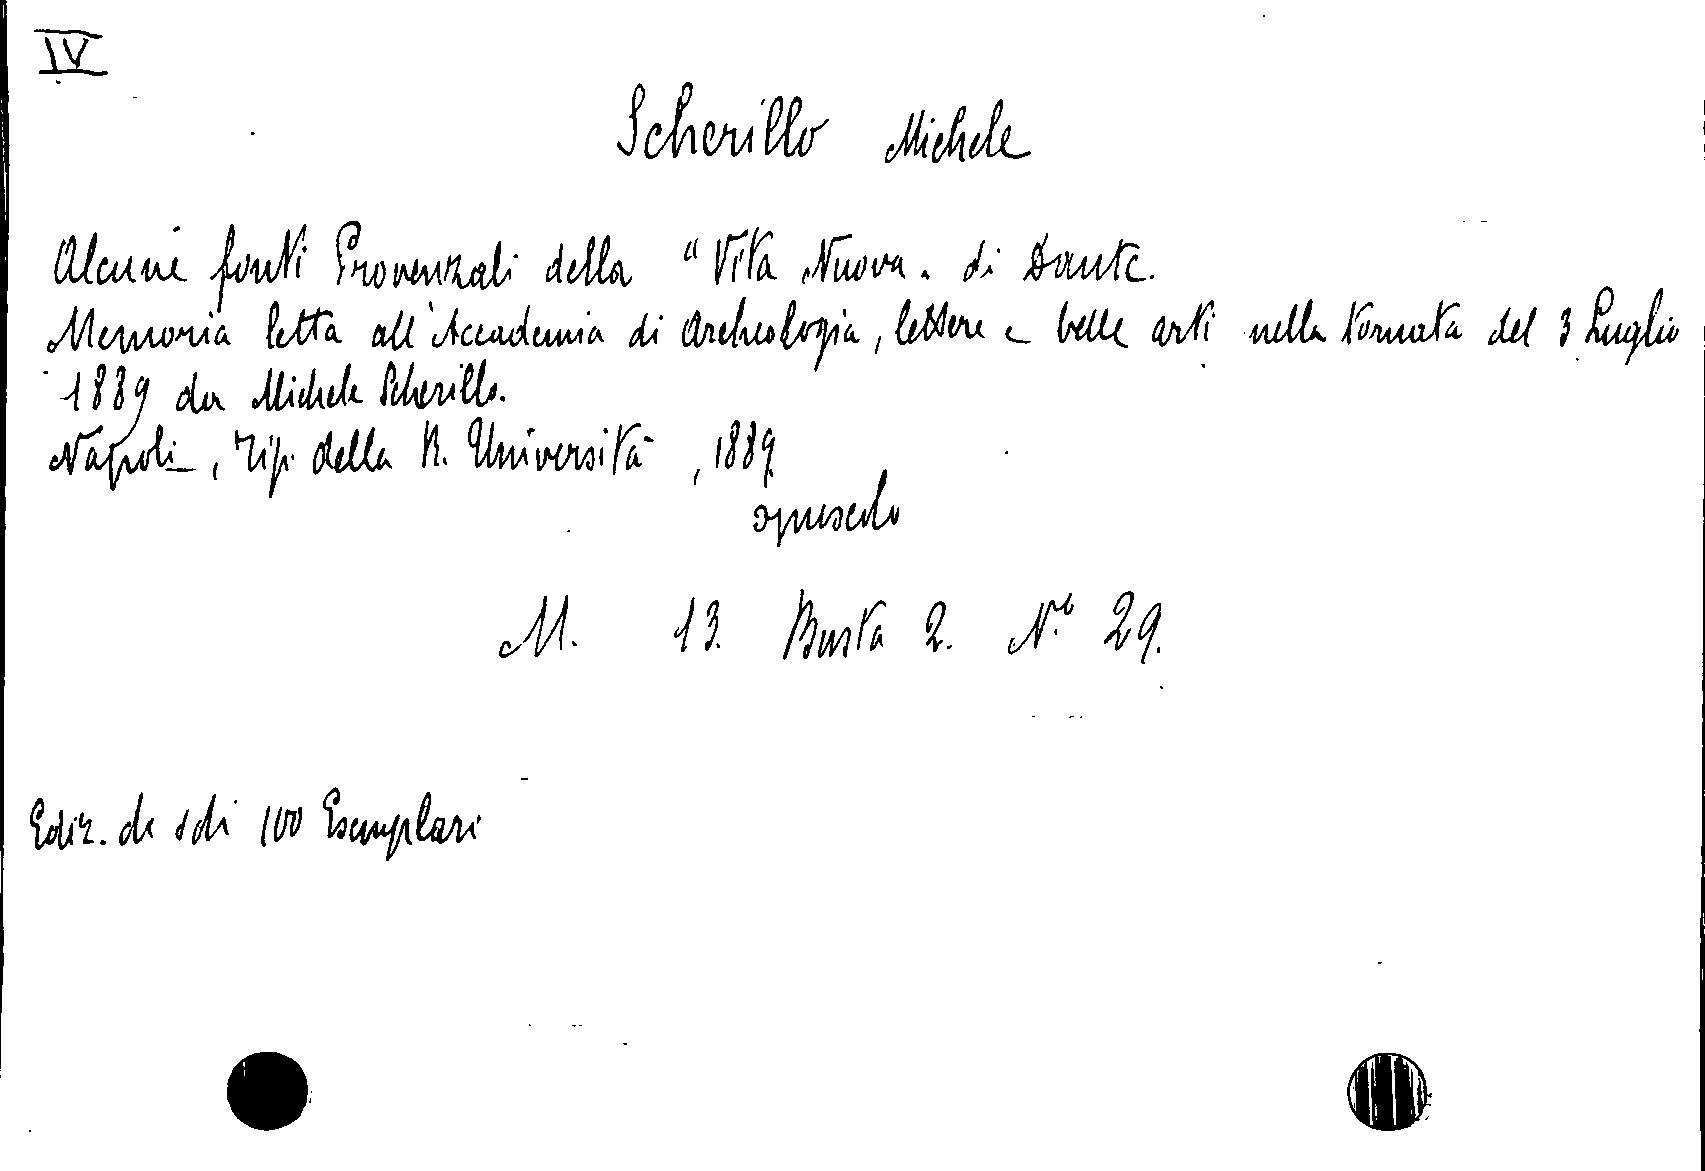 IV
Scherillo Michele
Alcune fonti Provenzali della "Vita Nuova" di Dante.
Memoria letta all'Accademia di Archeologia, lettere e belle arti nella tornata del 3 Luglio
1889 da Michele Scherillo.
Napoli, Tip. della R. Università, 1889
opuscolo
M. 13. Busta 2. N.º 29.
Ediz. di 100 Esemplari